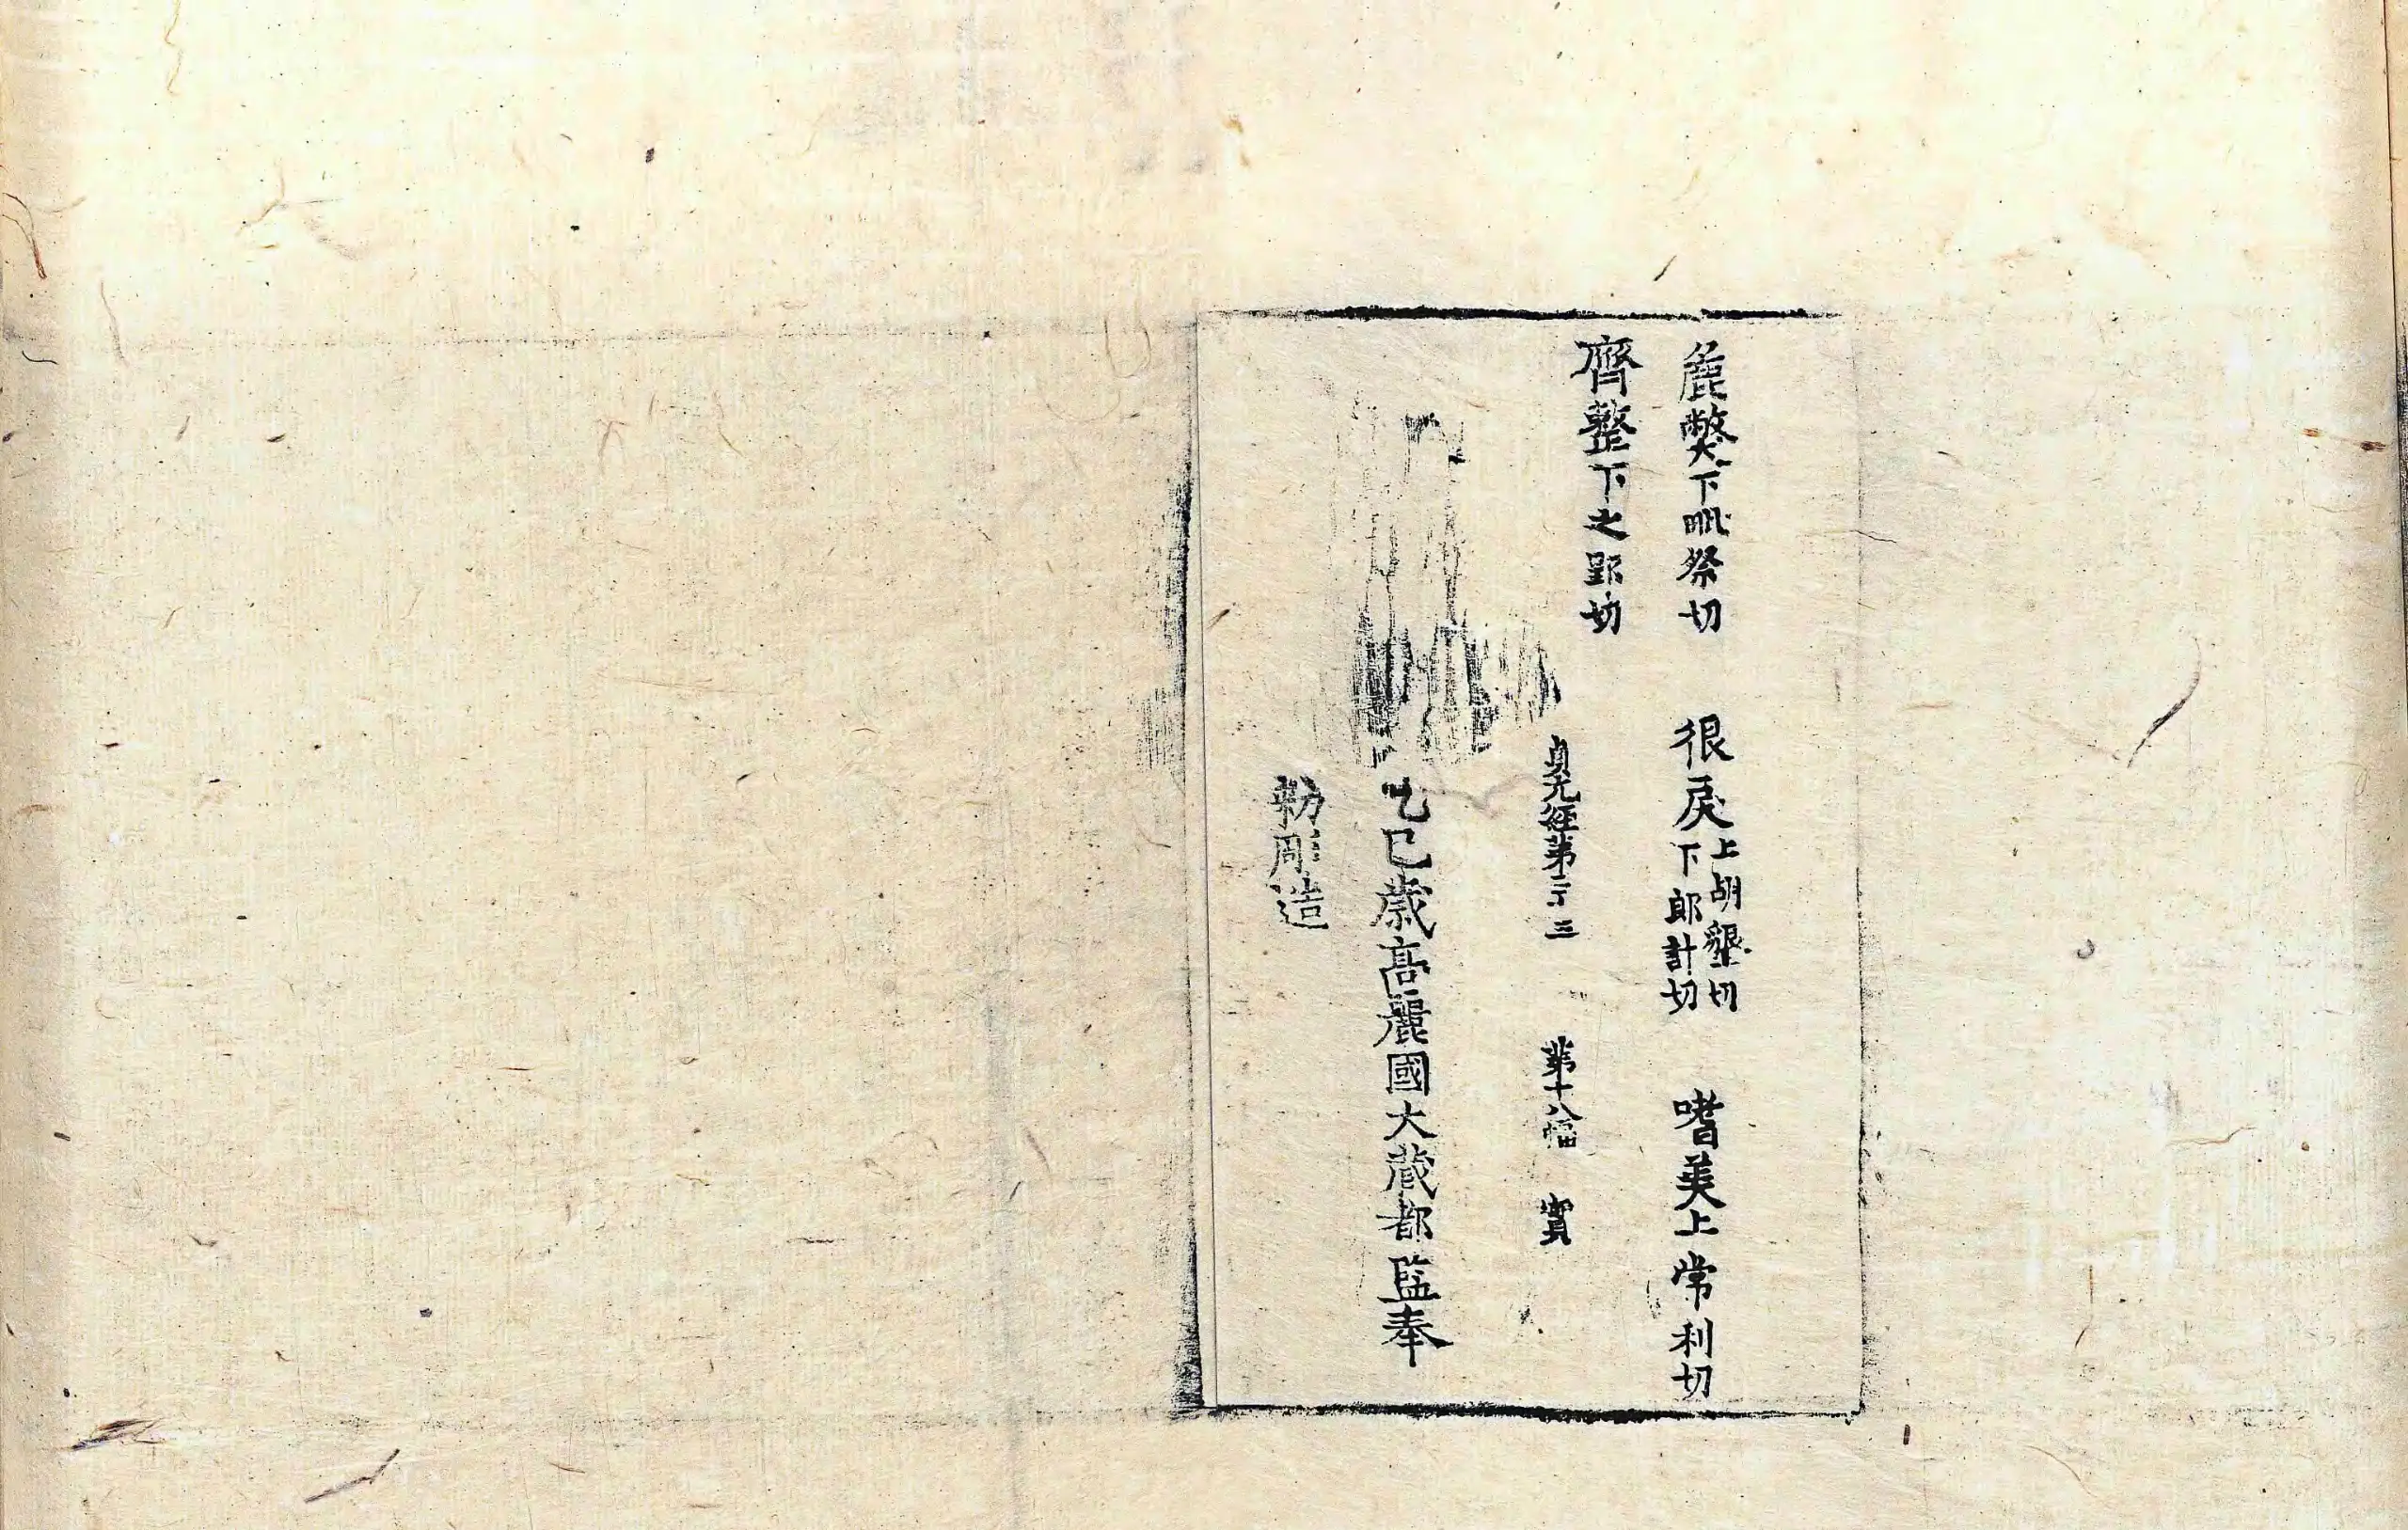 麁弊下毗祭切 很戾上胡墾切下郎計切 嗜美上常利切
齊整下之郢切
貞元經第二十三 第十八幅 實
乙巳歲高麗國大藏都監奉
勅彫造